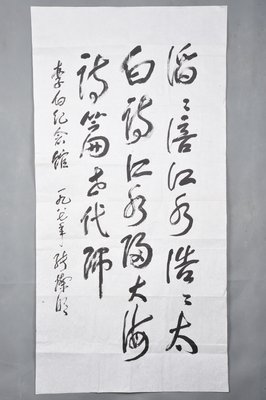 滔〻涪江水浩〻太
白诗江水归大海
诗篇代师
李白纪念馆 一九年